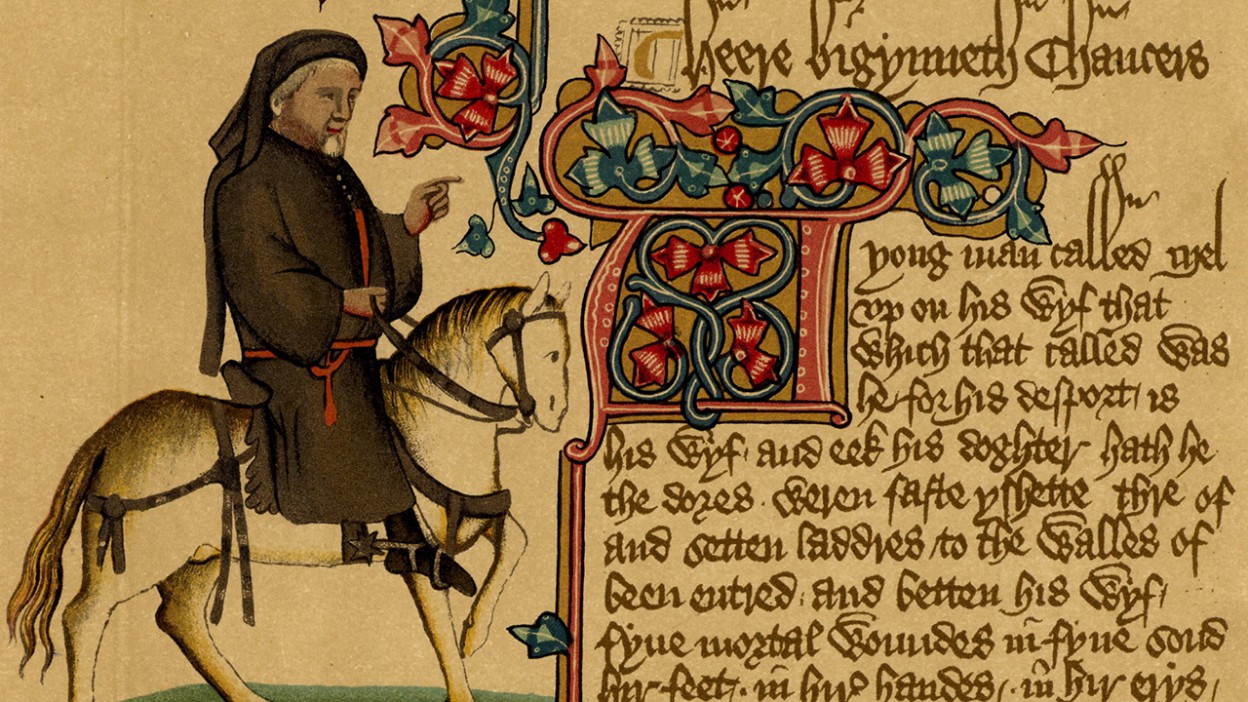 heere bigynneth Chaucers
A yong man called Mel
vp on his wyf that
which that called was
he for his desport / is
his wyf / and eek his doghter hath he
the dores weren faste yshette thre of
and setten laddres / to the walles of
been entred / and betten his wyf /
fyue mortal woundes in fyue sond
hir feet / in hir handes / in hir erys /